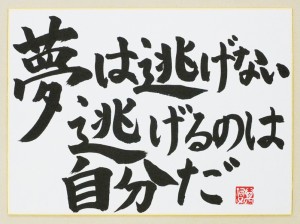 夢は逃げない
逃げるのは
自分だ